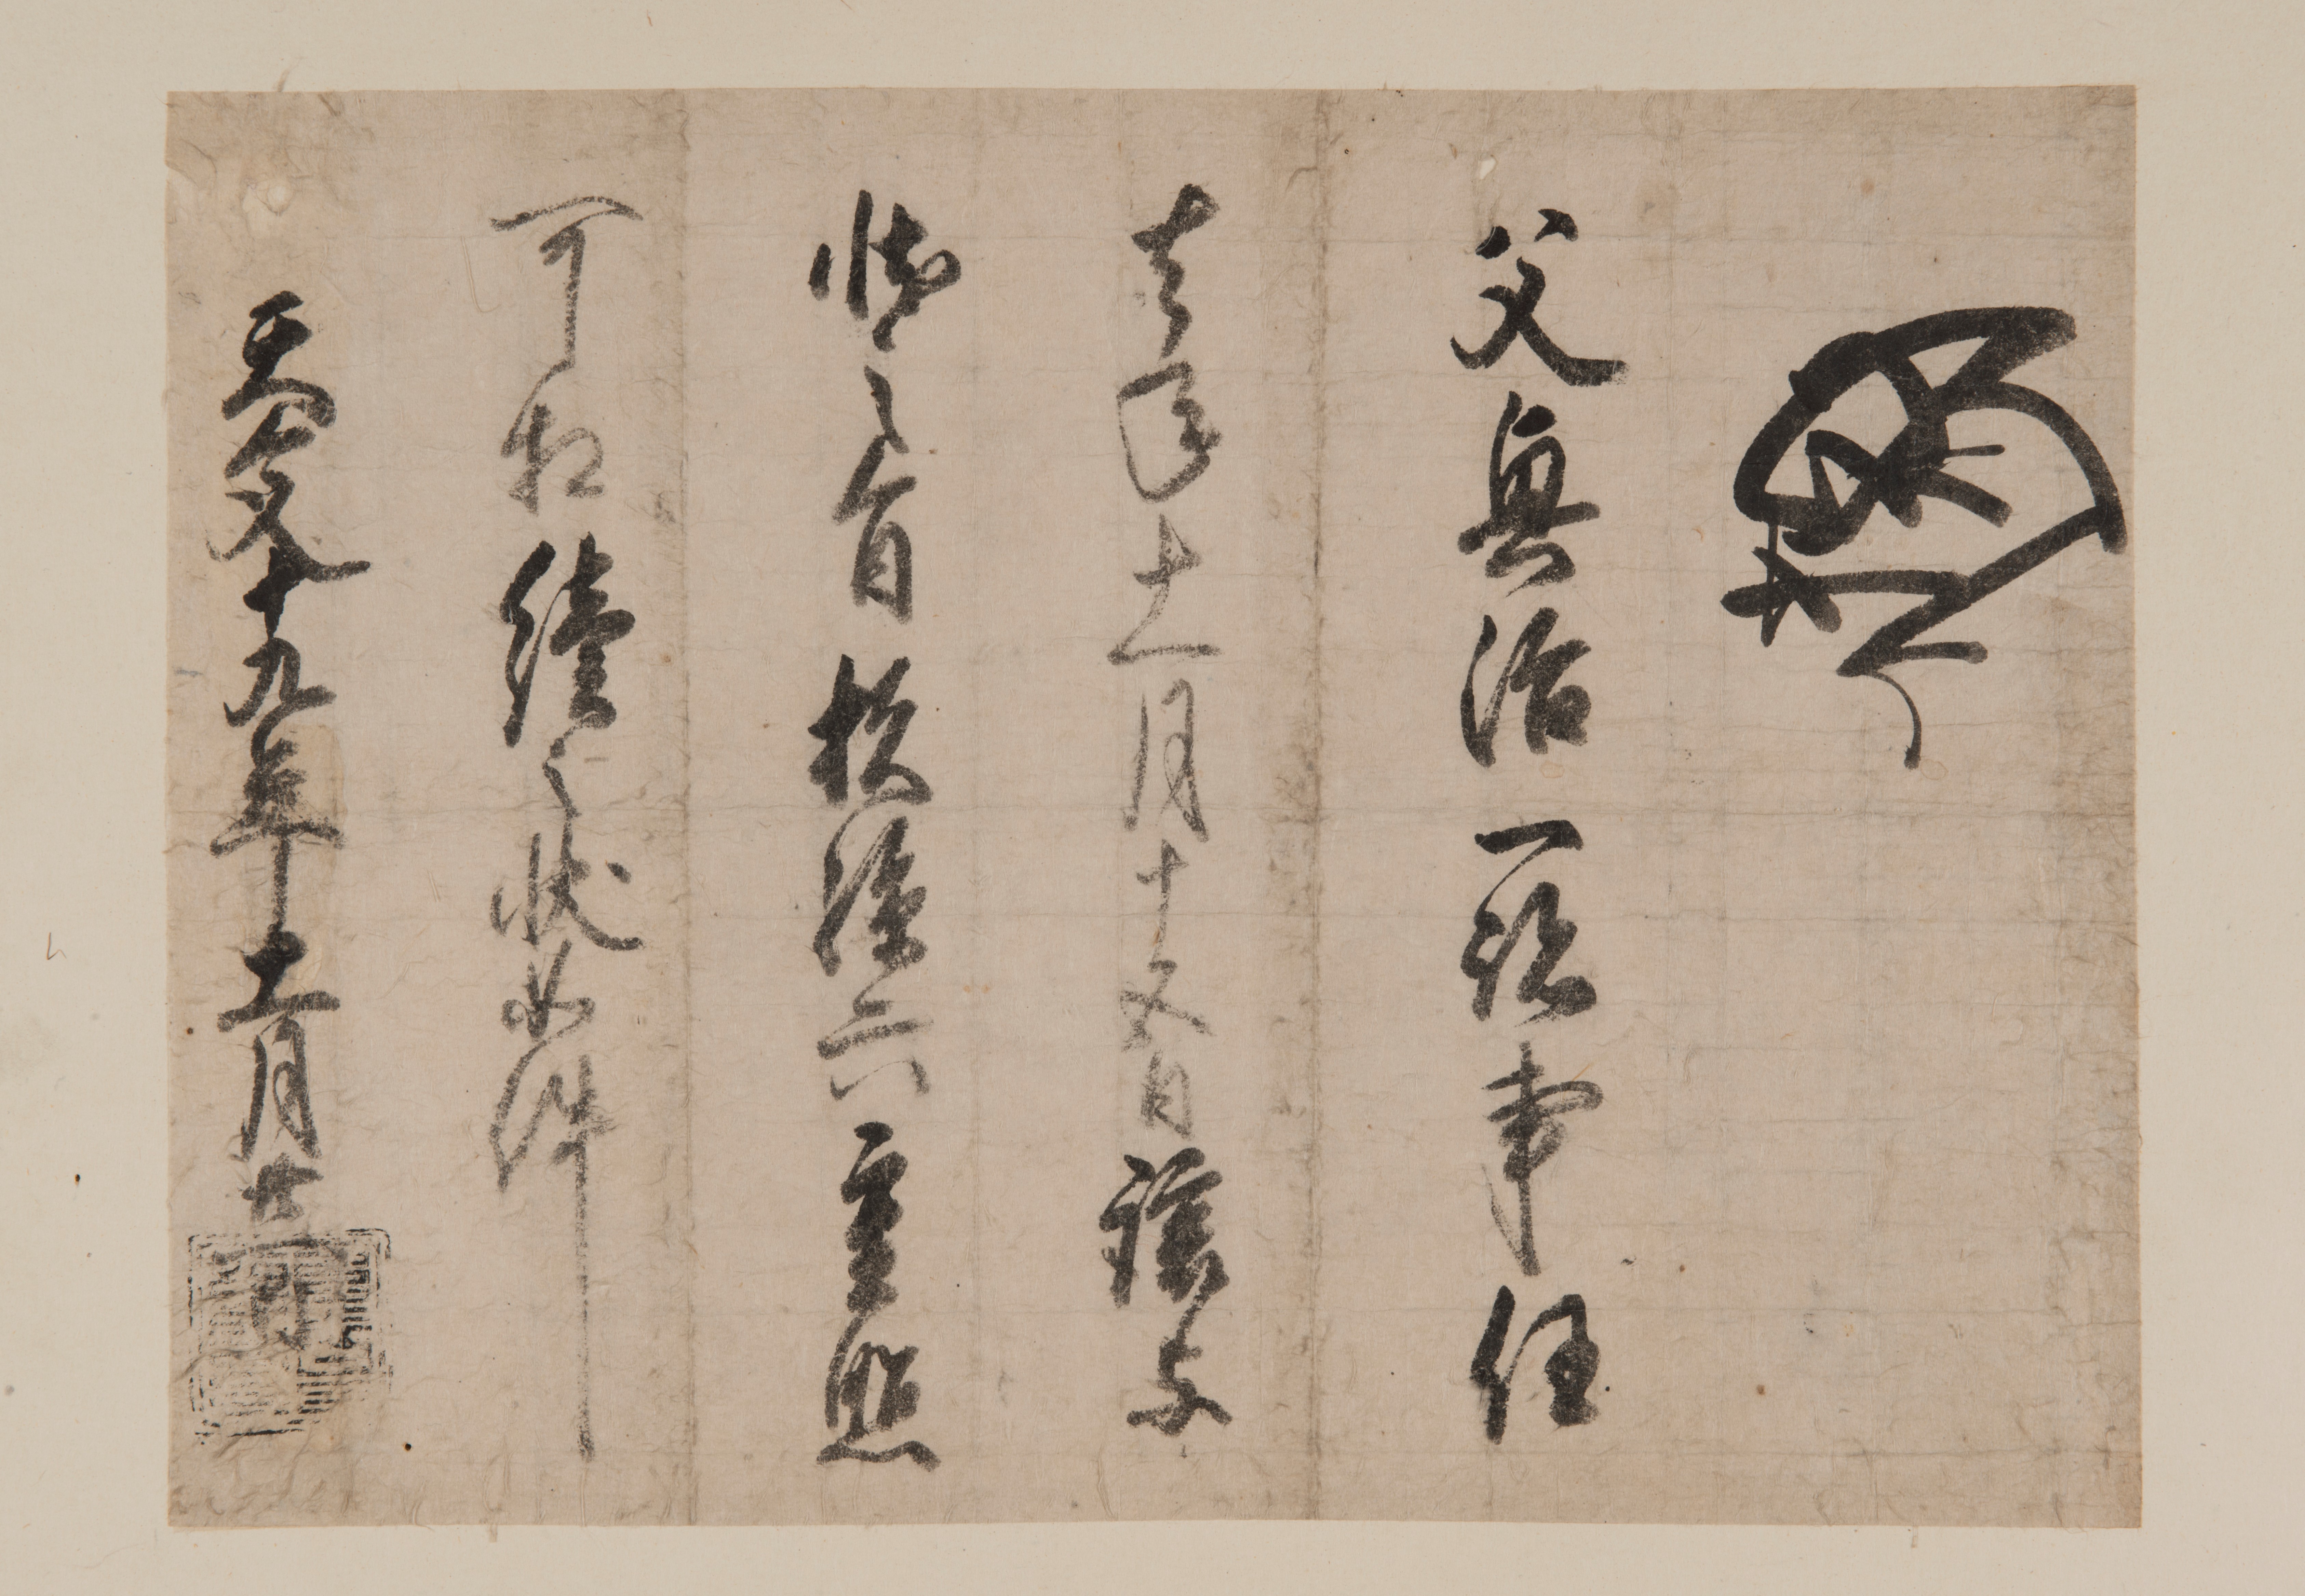 父興治一跡事任
去年十一月十五日譲与
状之旨杉孫六重照
可相続之状如件
天文十九年十一月廿一日